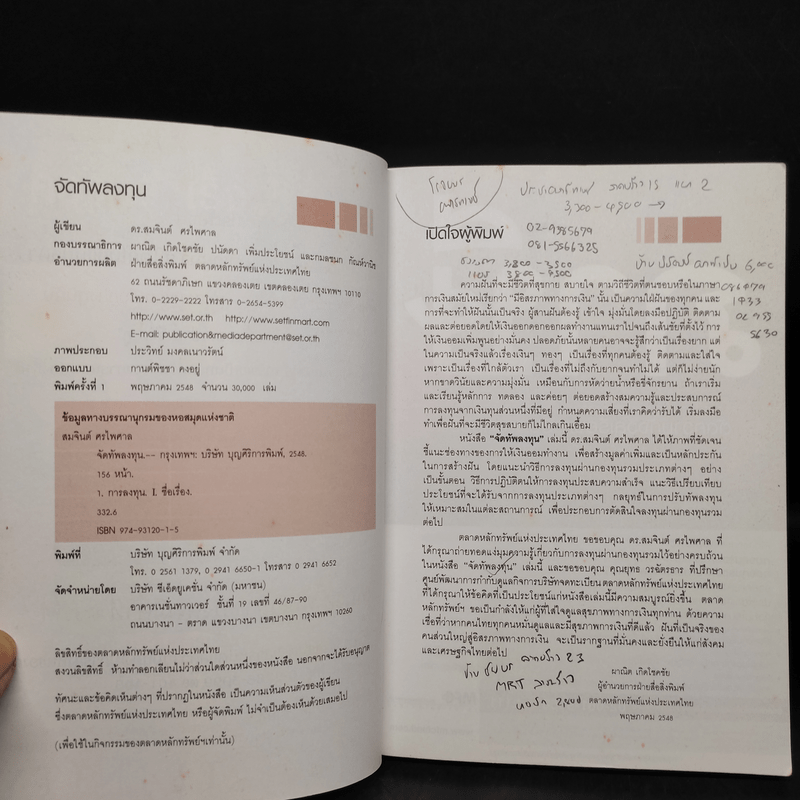 จัดทัพลงทุน
ผู้เขียน ดร.สมจินต์ ศรไพศาล
กองบรรณาธิการ ผาณิต เกิดโชคชัย ปนัดดา เพิ่มประโยชน์ และกมลชนก กัณห์วานิช
อำนวยการผลิต ฝ่ายสื่อสิ่งพิมพ์ ตลาดหลักทรัพย์แห่งประเทศไทย
62 ถนนรัชดาภิเษก แขวงคลองเตย เขตคลองเตย กรุงเทพฯ 10110
โทร. 0-2229-2222 โทรสาร 0-2654-5399
http://www.set.or.th http://www.settfinmart.com
E-mail: publication&mediadepartment@set.or.th
ภาพประกอบ ประวิทย์ มงคลเนาวรัตน์
ออกแบบ กานต์พิชชา คงอยู่
พิมพ์ครั้งที่ 1 พฤษภาคม 2548 จำนวน 30,000 เล่ม
ข้อมูลทางบรรณานุกรมของหอสมุดแห่งชาติ
สมจินต์ ศรไพศาล
จัดทัพลงทุน.-- กรุงเทพฯ: บริษัท บุญศิริการพิมพ์, 2548.
156 หน้า.
1. การลงทุน. I. ชื่อเรื่อง.
332.6
ISBN 974-93120-1-5
พิมพ์ที่ บริษัท บุญศิริการพิมพ์ จำกัด
โทร. 0 2561 1379, 0 2941 6650-1 โทรสาร 0 2941 6652
จัดจำหน่ายโดย บริษัท ซีเอ็ดยูเคชั่น จำกัด (มหาชน)
อาคารเนชั่นทาวเวอร์ ชั้นที่ 19 เลขที่ 46/87-90
ถนนบางนา - ตราด แขวงบางนา เขตบางนา กรุงเทพฯ 10260
ลิขสิทธิ์ของตลาดหลักทรัพย์แห่งประเทศไทย
สงวนลิขสิทธิ์ ห้ามทำลอกเลียนไม่ว่าส่วนใดส่วนหนึ่งของหนังสือ นอกจากจะได้รับอนุญาต
ทัศนะและข้อคิดเห็นต่างๆ ที่ปรากฏในหนังสือ เป็นความเห็นส่วนตัวของผู้เขียน
ซึ่งตลาดหลักทรัพย์แห่งประเทศไทย หรือผู้จัดพิมพ์ ไม่จำเป็นต้องเห็นด้วยเสมอไป
(เพื่อใช้ในกิจกรรมของตลาดหลักทรัพย์ฯเท่านั้น)
2
3,300 - 4,900 →
เปิดใจผู้พิมพ์
02-9385679
081-5566325
3,800 - 3,500
1105 3800 - 4300
6,000
ความฝันที่จะมีชีวิตที่สุขกาย สบายใจ ตามวิถีชีวิตที่ตนชอบหรือในภาษา
การเงินสมัยใหม่เรียกว่า "มีอิสรภาพทางการเงิน" นั้น เป็นความใฝ่ฝันของทุกคน และ
การที่จะทำให้ฝันนั้นเป็นจริง ผู้สานฝันต้องรู้ เข้าใจ มุ่งมั่นโดยลงมือปฏิบัติ ติดตาม
ผลและต่อยอดโดยให้เงินออกดอกออกผลทำงานแทนเราไปจนถึงเส้นชัยที่ตั้งไว้ การ
ให้เงินออมเพิ่มพูนอย่างมั่นคง ปลอดภัยนั้นหลายคนอาจจะรู้สึกว่าเป็นเรื่องยาก แต่
ในความเป็นจริงแล้วเรื่องเงินๆ ทองๆ เป็นเรื่องที่ทุกคนต้องรู้ ติดตามและใส่ใจ
เพราะเป็นเรื่องที่ใกล้ตัวเรา เป็นเรื่องที่ไม่ถึงกับยากจนทำไม่ได้ แต่ก็ไม่ง่ายนัก
หากขาดวินัยและความมุ่งมั่น เหมือนกับการหัดว่ายน้ำหรือขี่จักรยาน ถ้าเราเริ่ม
และเรียนรู้หลักการ ทดลอง และค่อยๆ ต่อยอดสร้างสมความรู้และประสบการณ์
การลงทุนจากเงินทุนส่วนหนึ่งที่มีอยู่ กำหนดความเสี่ยงที่เราคิดว่ารับได้ เริ่มลงมือ
ทำเพื่อฝันที่จะมีชีวิตสุขสบายก็ไม่ไกลเกินเอื้อม
1933
5630
หนังสือ "จัดทัพลงทุน" เล่มนี้ ดร.สมจินต์ ศรไพศาล ได้ให้ภาพที่ชัดเจน
ชี้แนะช่องทางของการให้เงินออมทำงาน เพื่อสร้างมูลค่าเพิ่มและเป็นหลักประกัน
ในการสร้างฝัน โดยแนะนำวิธีการลงทุนผ่านกองทุนรวมประเภทต่างๆ อย่าง
เป็นขั้นตอน วิธีการปฏิบัติตนให้การลงทุนประสบความสำเร็จ แนะวิธีเปรียบเทียบ
ประโยชน์ที่จะได้รับจากการลงทุนประเภทต่างๆ กลยุทธ์ในการปรับทัพลงทุน
ให้เหมาะสมในแต่ละสถานการณ์ เพื่อประกอบการตัดสินใจลงทุนผ่านกองทุนรวม
ต่อไป
ตลาดหลักทรัพย์แห่งประเทศไทย ขอขอบคุณ ดร.สมจินต์ ศรไพศาล ที่
ได้กรุณาถ่ายทอดแง่มุมความรู้เกี่ยวกับการลงทุนผ่านกองทุนรวมไว้อย่างครบถ้วน
ในหนังสือ "จัดทัพลงทุน" เล่มนี้ และขอขอบคุณ คุณยุทธ วรฉัตรธาร ที่ปรึกษา
ศูนย์พัฒนาการกำกับดูแลกิจการบริษัทจดทะเบียน ตลาดหลักทรัพย์แห่งประเทศไทย
ที่ได้กรุณาให้ข้อคิดที่เป็นประโยชน์แก่หนังสือเล่มนี้มีความสมบูรณ์ยิ่งขึ้น ตลาด
หลักทรัพย์ฯ ขอเป็นกำลังให้แก่ผู้ที่ใส่ใจดูแลสุขภาพทางการเงินทุกท่าน ด้วยความ
เชื่อที่ว่าหากคนไทยทุกคนหมั่นดูแลและมีสุขภาพการเงินที่ดีแล้ว ฝันที่เป็นจริงของ
คนส่วนใหญ่สู่อิสรภาพทางการเงิน จะเป็นรากฐานที่มั่นคงและยั่งยืนให้แก่สังคม
และเศรษฐกิจไทยต่อไป
23
MRT
ผาณิต เกิดโชคชัย
ผู้อำนวยการฝ่ายสื่อสิ่งพิมพ์
ตลาดหลักทรัพย์แห่งประเทศไทย
พฤษภาคม 2548